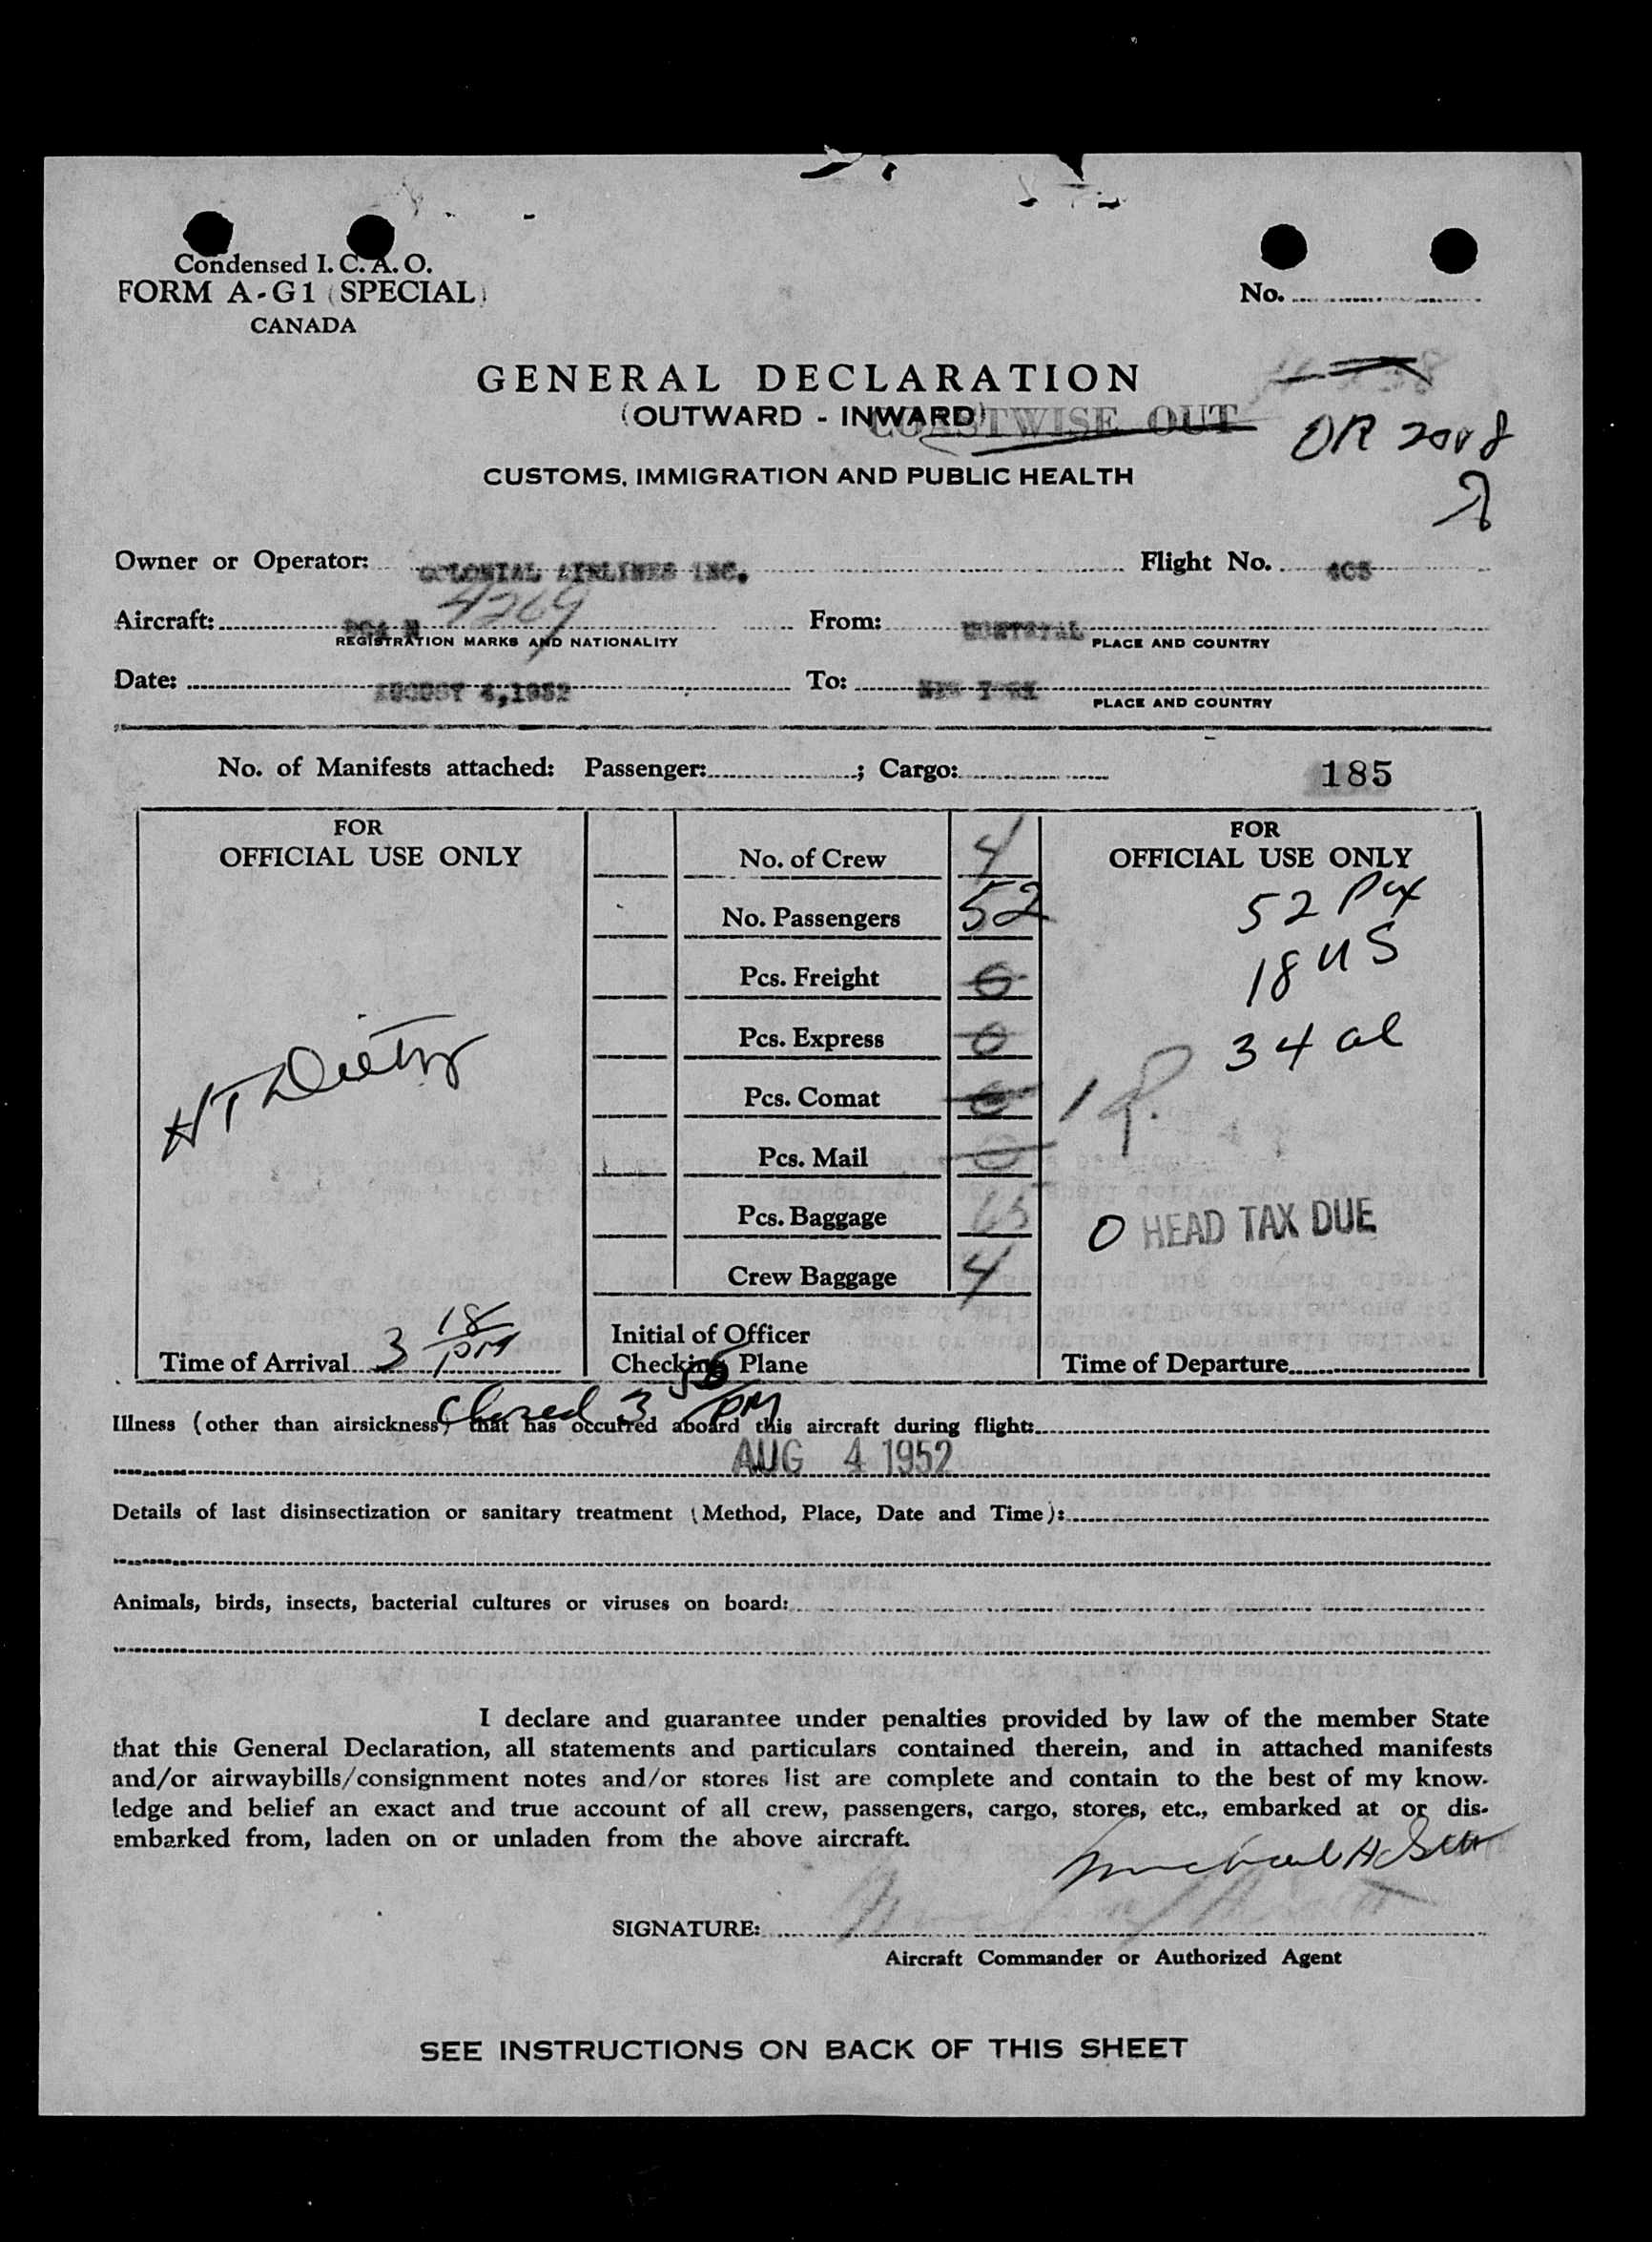 Condensed I. C. A. O.
FORM A-G1 (SPECIAL)
CANADA
No.
GENERAL DECLARATION
(OUTWARD - INWARD)
COASTWISE OUT
CUSTOMS, IMMIGRATION AND PUBLIC HEALTH
Owner or Operator: COLONIAL AIRLINES INC. Flight No.
Aircraft: 4269 From: MONTREAL
REGISTRATION MARKS AND NATIONALITY PLACE AND COUNTRY
Date: AUGUST 4,1952 To: NEW YORK
PLACE AND COUNTRY
No. of Manifests attached: Passenger: ; Cargo: 185
FOR
OFFICIAL USE ONLY
Time of Arrival 3 18 PM
No. of Crew 4
No. Passengers 52
Pcs. Freight 0
Pcs. Express 0
Pcs. Comat 0
Pcs. Mail 0
Pcs. Baggage
Crew Baggage 4
Initial of Officer
Checking Plane
FOR
OFFICIAL USE ONLY
52
18 US
34 al
0 HEAD TAX DUE
Time of Departure
Illness (other than airsickness) that has occurred aboard this aircraft during flight:
3 PM
AUG 4 1952
Details of last disinsectization or sanitary treatment (Method, Place, Date and Time):
Animals, birds, insects, bacterial cultures or viruses on board:
I declare and guarantee under penalties provided by law of the member State
that this General Declaration, all statements and particulars contained therein, and in attached manifests
and/or airwaybills/consignment notes and/or stores list are complete and contain to the best of my know-
ledge and belief an exact and true account of all crew, passengers, cargo, stores, etc., embarked at or dis-
embarked from, laden on or unladen from the above aircraft.
SIGNATURE:
Aircraft Commander or Authorized Agent
SEE INSTRUCTIONS ON BACK OF THIS SHEET